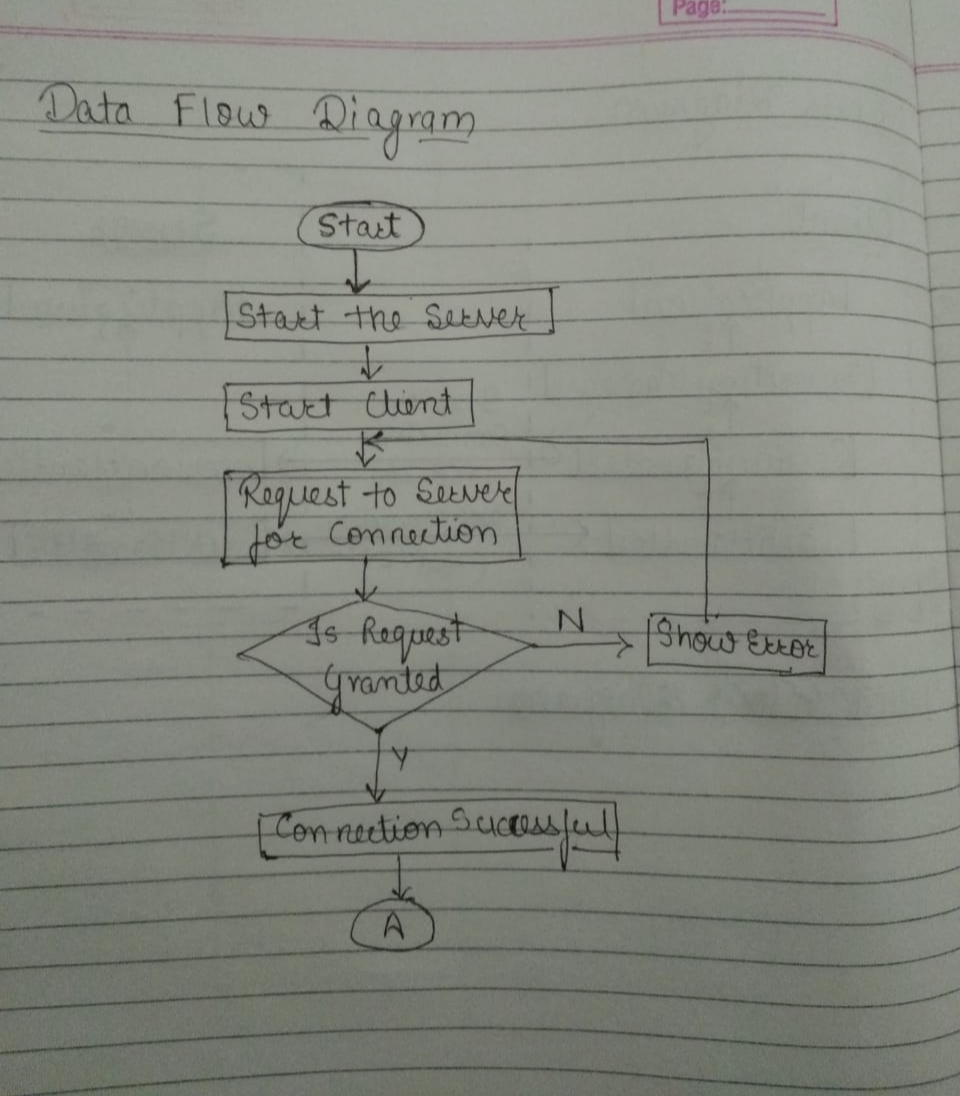 Page:
Data Flow Diagram
Start
Start the Server
Start Client
Request to Server
for Connection
Is Request
Granted
N
Show Error
Y
Connection Successful
A